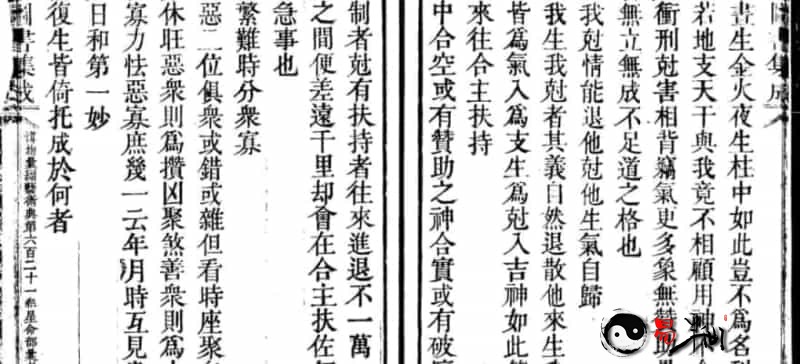 圖書集成
晝生金火夜生柱中如此豈不為名
若地支天干與我竟不相顧用神
衝刑尅害相背竊氣更多象無贊助
無立無成不足道之格也
我尅情能退他尅他生氣自歸
我生我尅者其義自然退散他來生
皆為氣入為支生為尅入吉神如此
來往合主扶持
中合空或有贊助之神合實或有破
制者尅有扶持者往來進退不一萬
之間便差遠千里却會在合主扶佐
急事也
繁難時分衆寡
惡二位俱衆或錯或雜但看時座聚
休旺惡衆則為攢凶聚煞善衆則為
寡力怯惡寡庶幾一云年月時互見
日和第一妙
復生皆倚托成於何者
圖書集成
博物彙編藝術典第六百二十一卷星命部彙